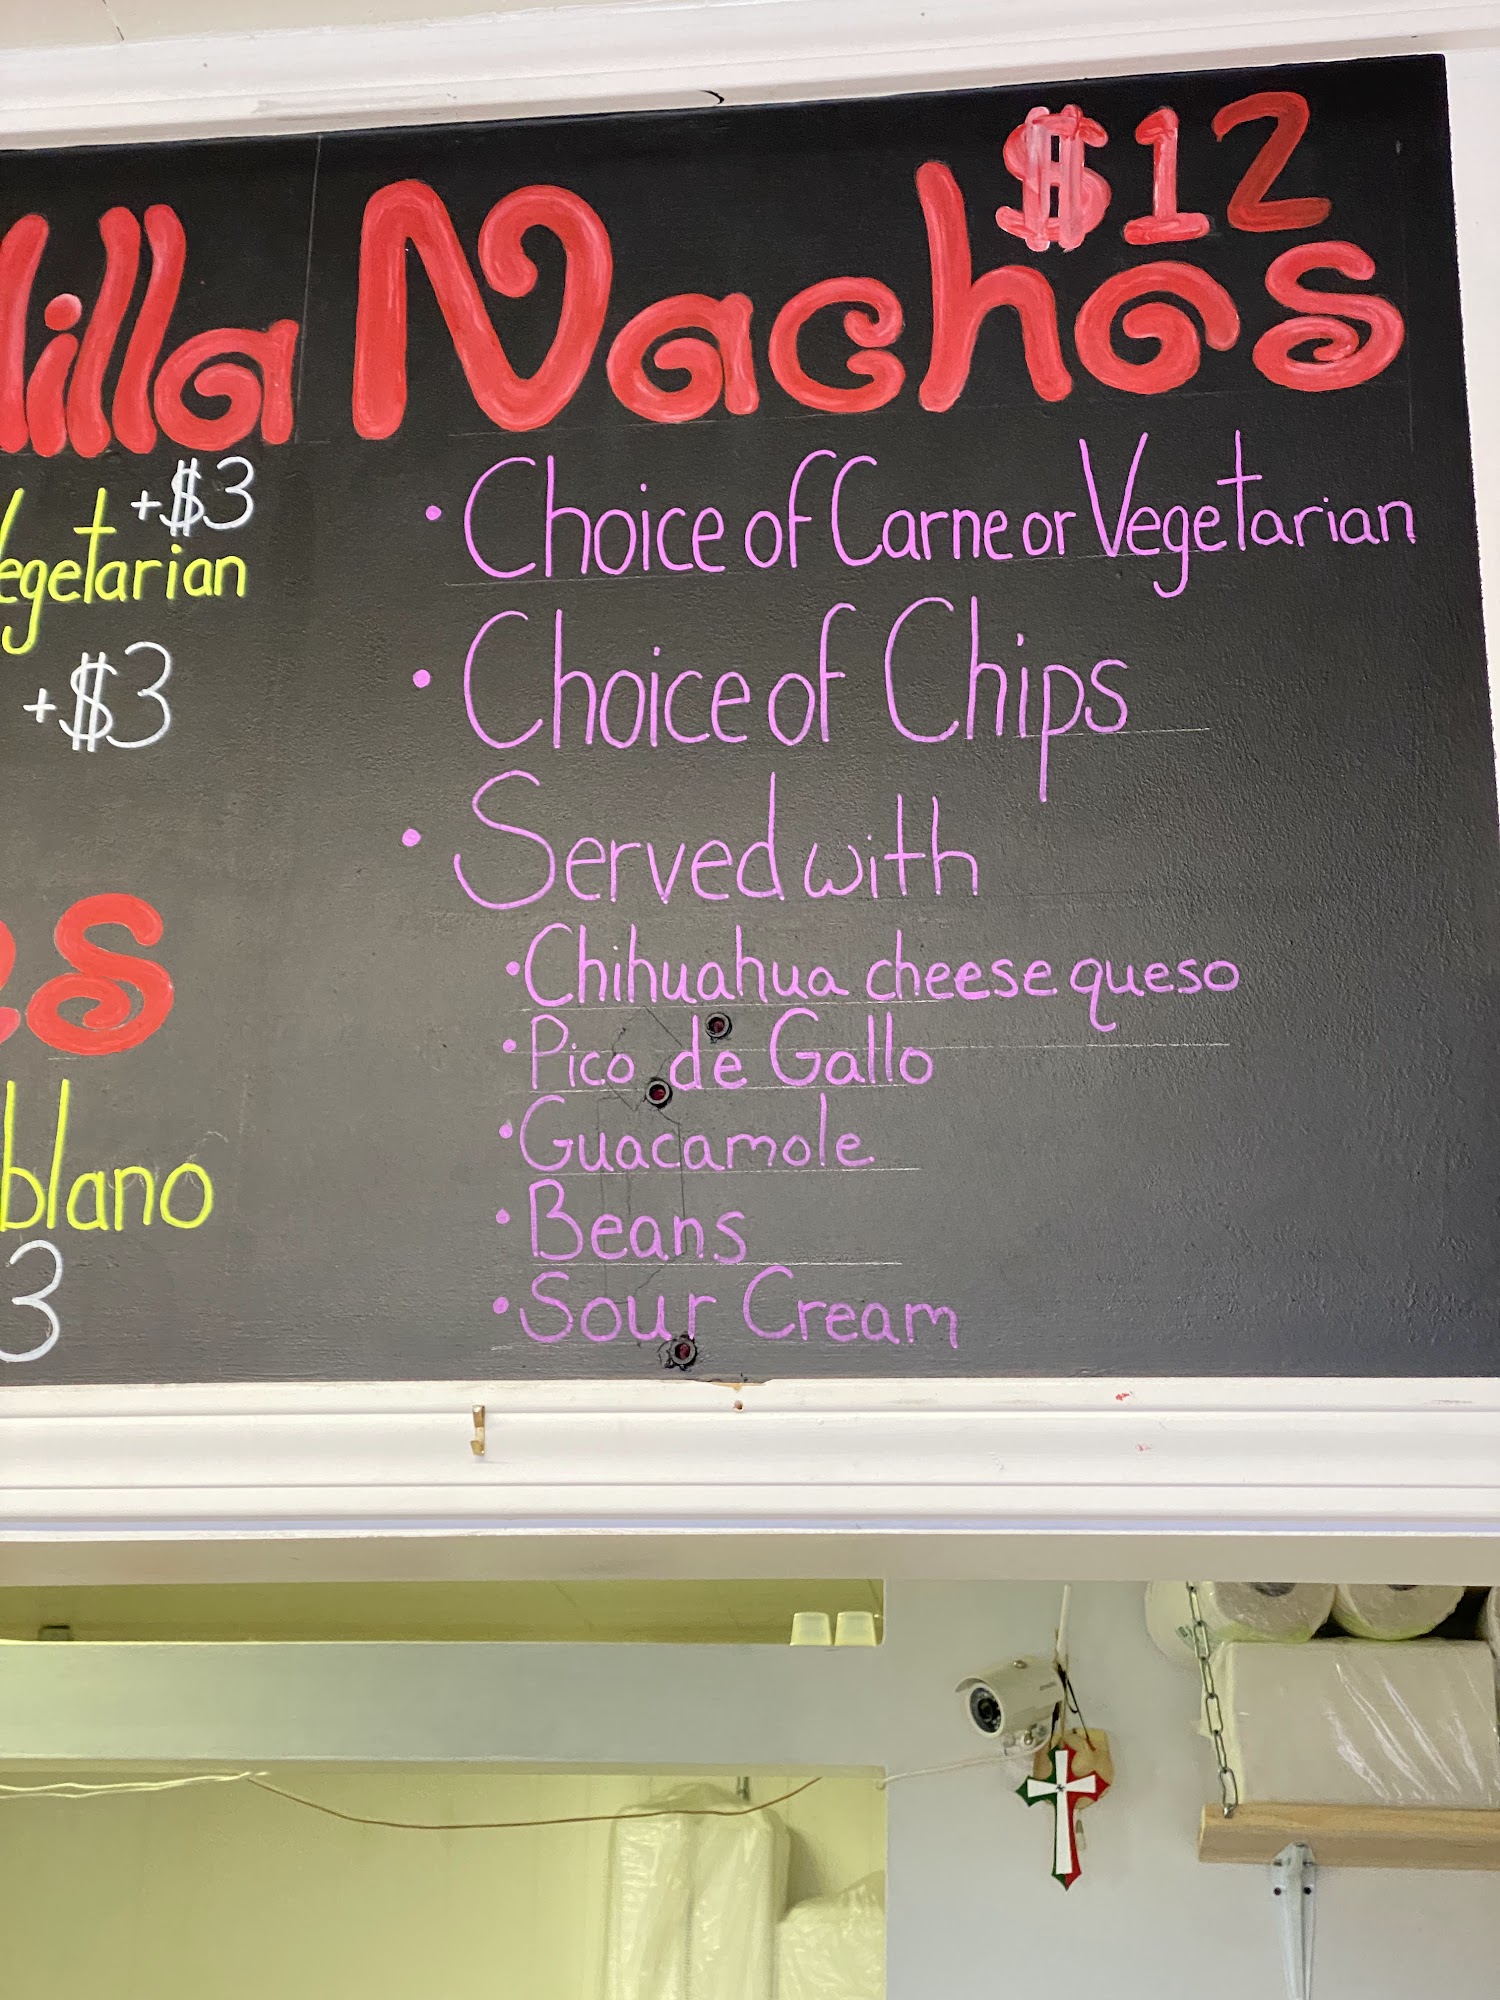 Nachos $12
• Choice of Carne or Vegetarian
• Choice of Chips
• Served with
• Chihuahua cheese queso
• Pico de Gallo
• Guacamole
• Beans
• Sour Cream
illa
+$3
Vegetarian
+$3
es
blano
3